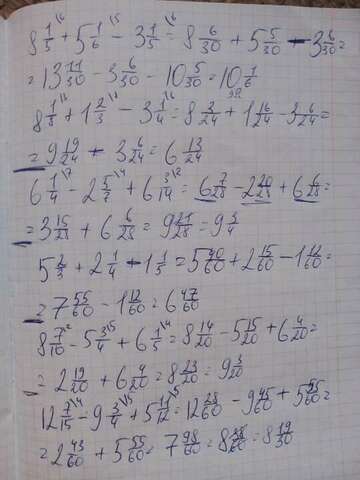 8 1/5 + 5 1/6 - 3 1/5 = 8 6/30 + 5 5/30 - 3 6/30 =
= 13 11/30 - 3 6/30 - 10 5/30 = 10 1/6
8 1/8 + 1 2/3 - 3 1/4 = 8 3/24 + 1 16/24 - 3 6/24 =
= 9 19/24 - 3 6/24 = 6 13/24
6 1/4 - 2 5/7 + 6 3/14 = 6 7/28 - 2 20/28 + 6 6/28 =
= 3 15/28 + 6 6/28 = 9 21/28 = 9 3/4
5 2/3 + 2 1/4 - 1 1/5 = 5 40/60 + 2 15/60 - 1 12/60 =
= 7 55/60 - 1 12/60 = 6 47/60
8 7/10 - 5 3/4 + 6 1/5 = 8 14/20 - 5 15/20 + 6 4/20 =
= 2 19/20 + 6 4/20 = 8 23/20 = 9 3/20
12 7/15 - 9 3/4 + 5 11/12 = 12 28/60 - 9 45/60 + 5 55/60 =
= 2 43/60 + 5 55/60 = 7 98/60 = 8 38/60 = 8 19/30